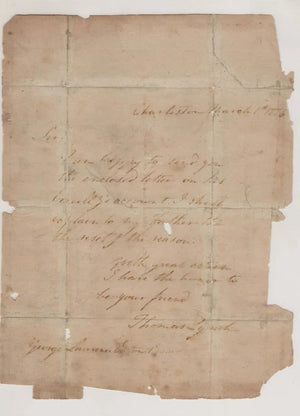 Charleston March 1st 1776
Sir
I am happy to send you
the enclosed letter on his
account I shall
explain to my father
the rest of the reason.
With great esteem
I have the honor to
be your friend
Thomas Lynch
George